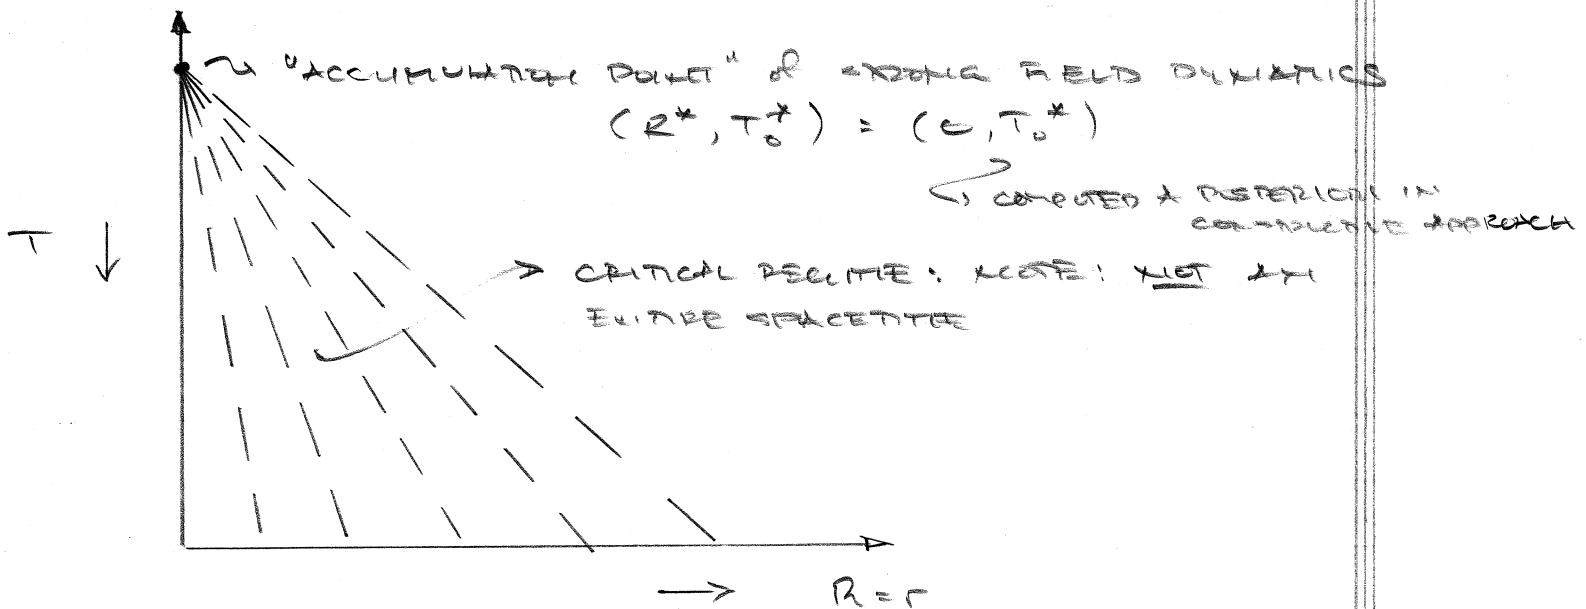 "ACCUMULATION POINT" of STRONG FIELD DYNAMICS
(R*, T₀*) = (0, T₀*)
COMPUTED A POSTERIORI IN
CONSTRUCTIVE APPROACH
T ↓
→ CRITICAL REGIME: NOTE: NOT AN
ENTIRE SPACETIME
→ R = r